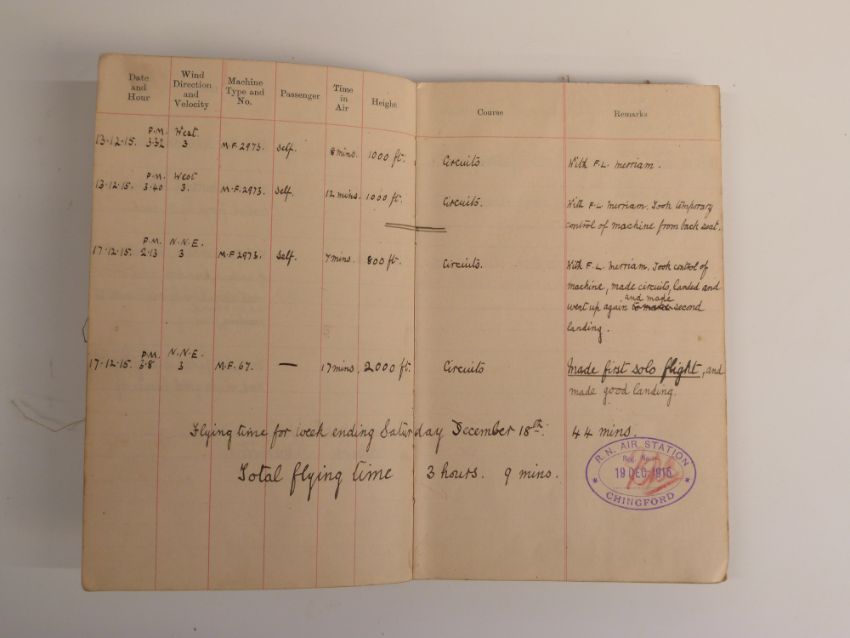 Date and Hour Wind Direction and Velocity Machine Type and No. Passenger Time in Air Height Course Remarks
13·12·15. P.M. 3·32 West 3 M.F. 2973. Self. 8 mins. 1000 ft. Circuits. With F.L. Merriam.
13·12·15. P.M. 3·40 West 3. M.F. 2973. Self. 12 mins. 1000 ft. Circuits. With F.L. Merriam. Took temporary
control of machine from back seat.
17·12·15. P.M. 2·13 N.N.E. 3 M.F. 2973. Self. 7 mins. 800 ft. Circuits. With F.L. Merriam. Took control of
machine, made circuits, landed and
went up again and made second
landing.
17·12·15. P.M. 3·8 N.N.E. 3 M.F. 67. — 17 mins. 2000 ft. Circuits Made first solo flight, and
made good landing.
Flying time for week ending Saturday December 18th. 44 mins.
Total flying time 3 hours. 9 mins.
R.N. AIR STATION
19 DEC 1915
CHINGFORD